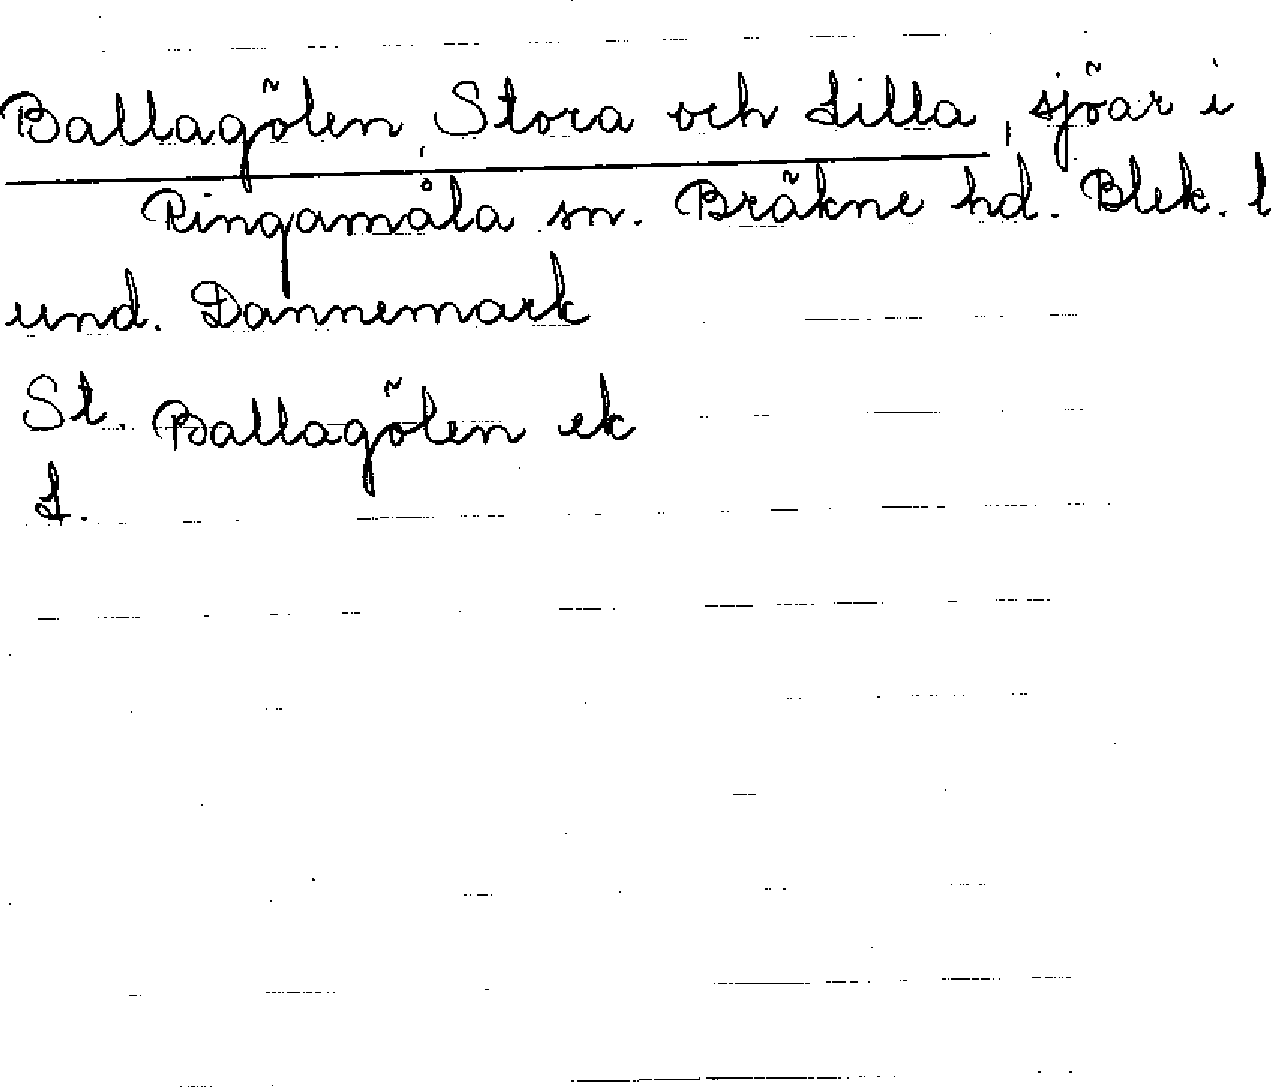 Ballagölen, Stora och Lilla, sjöar i
Ringamåla sn. Bräkne hd. Blek. l
und. Dannemark
St. Ballagölen ek
L.